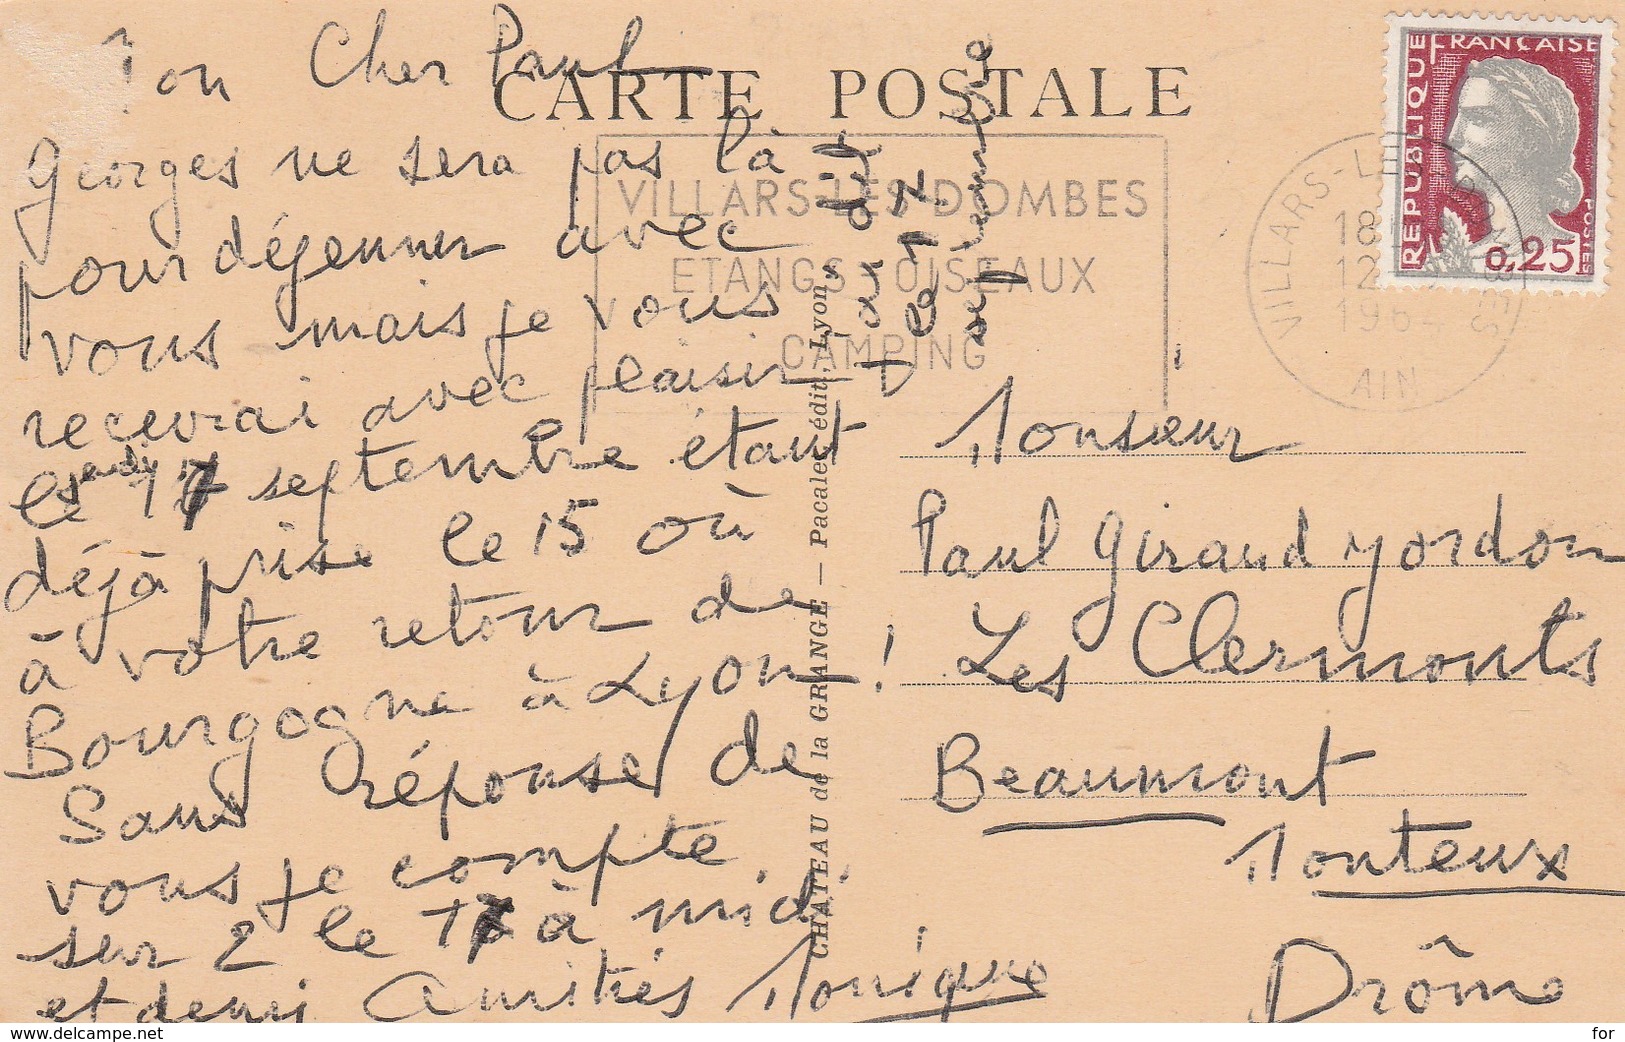 Mon Cher Paul
Georges ne sera pas là
pour déjeuner avec
vous mais je vous
recevrai avec plaisir
le jeudi 17 septembre étant
déjà prise le 15 où
à votre retour de
Bourgogne à Lyon !
Sans réponse de
vous je compte
sur 2 le 17 à midi
et demi Amitiés Monique
le 17
septembre
CARTE POSTALE
VILLARS-LES-DOMBES
ETANGS OISEAUX
CAMPING
CHATEAU de la GRANGE — Pacalet édit., Lyon
VILLARS-LES-DOMBES
18 H
12
1964
AIN
REPUBLIQUE FRANÇAISE
POSTES
0,25
Monsieur
Paul Giraud Mordon
Les Clermonts
Beaumont
Monteux
Drôme
www.delcampe.net
for